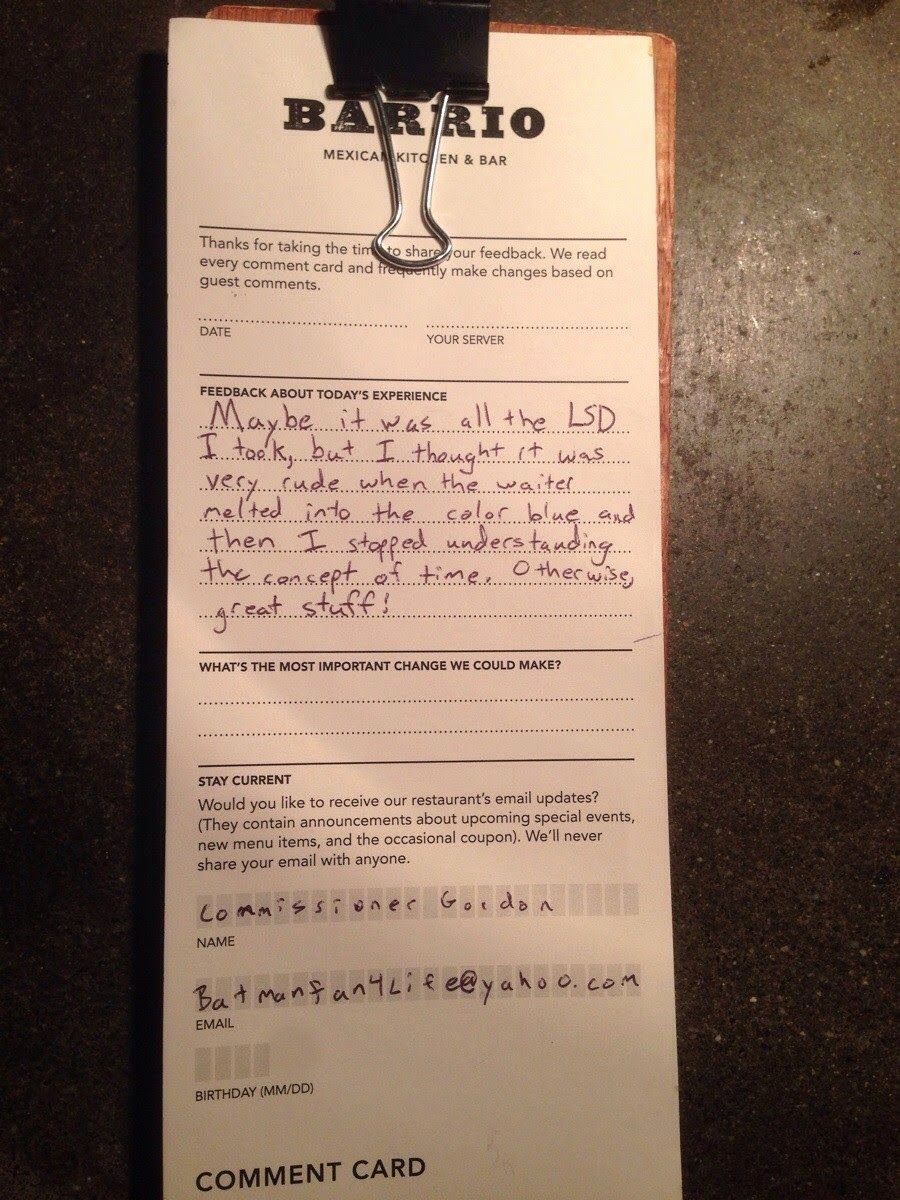 BARRIO
MEXICAN KITCHEN & BAR
Thanks for taking the time to share your feedback. We read
every comment card and frequently make changes based on
guest comments.
DATE
YOUR SERVER
FEEDBACK ABOUT TODAY'S EXPERIENCE
Maybe it was all the LSD
I took, but I thought it was
very rude when the waiter
melted into the color blue and
then I stopped understanding
the concept of time. Otherwise,
great stuff!
WHAT'S THE MOST IMPORTANT CHANGE WE COULD MAKE?
STAY CURRENT
Would you like to receive our restaurant's email updates?
(They contain announcements about upcoming special events,
new menu items, and the occasional coupon). We'll never
share your email with anyone.
Commissioner Gordon
NAME
Batmanfan4Life@yahoo.com
EMAIL
BIRTHDAY (MM/DD)
COMMENT CARD